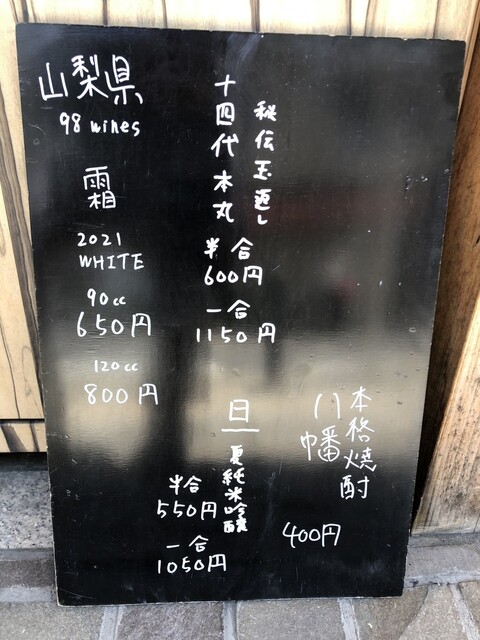 山梨県
98 wines
霜
2021
WHITE
90cc
650円
120cc
800円
秘伝玉返し
十四代本丸
半合
600円
一合
1150円
旦
夏純米吟醸
半合
550円
一合
1050円
本格焼酎
八幡
400円